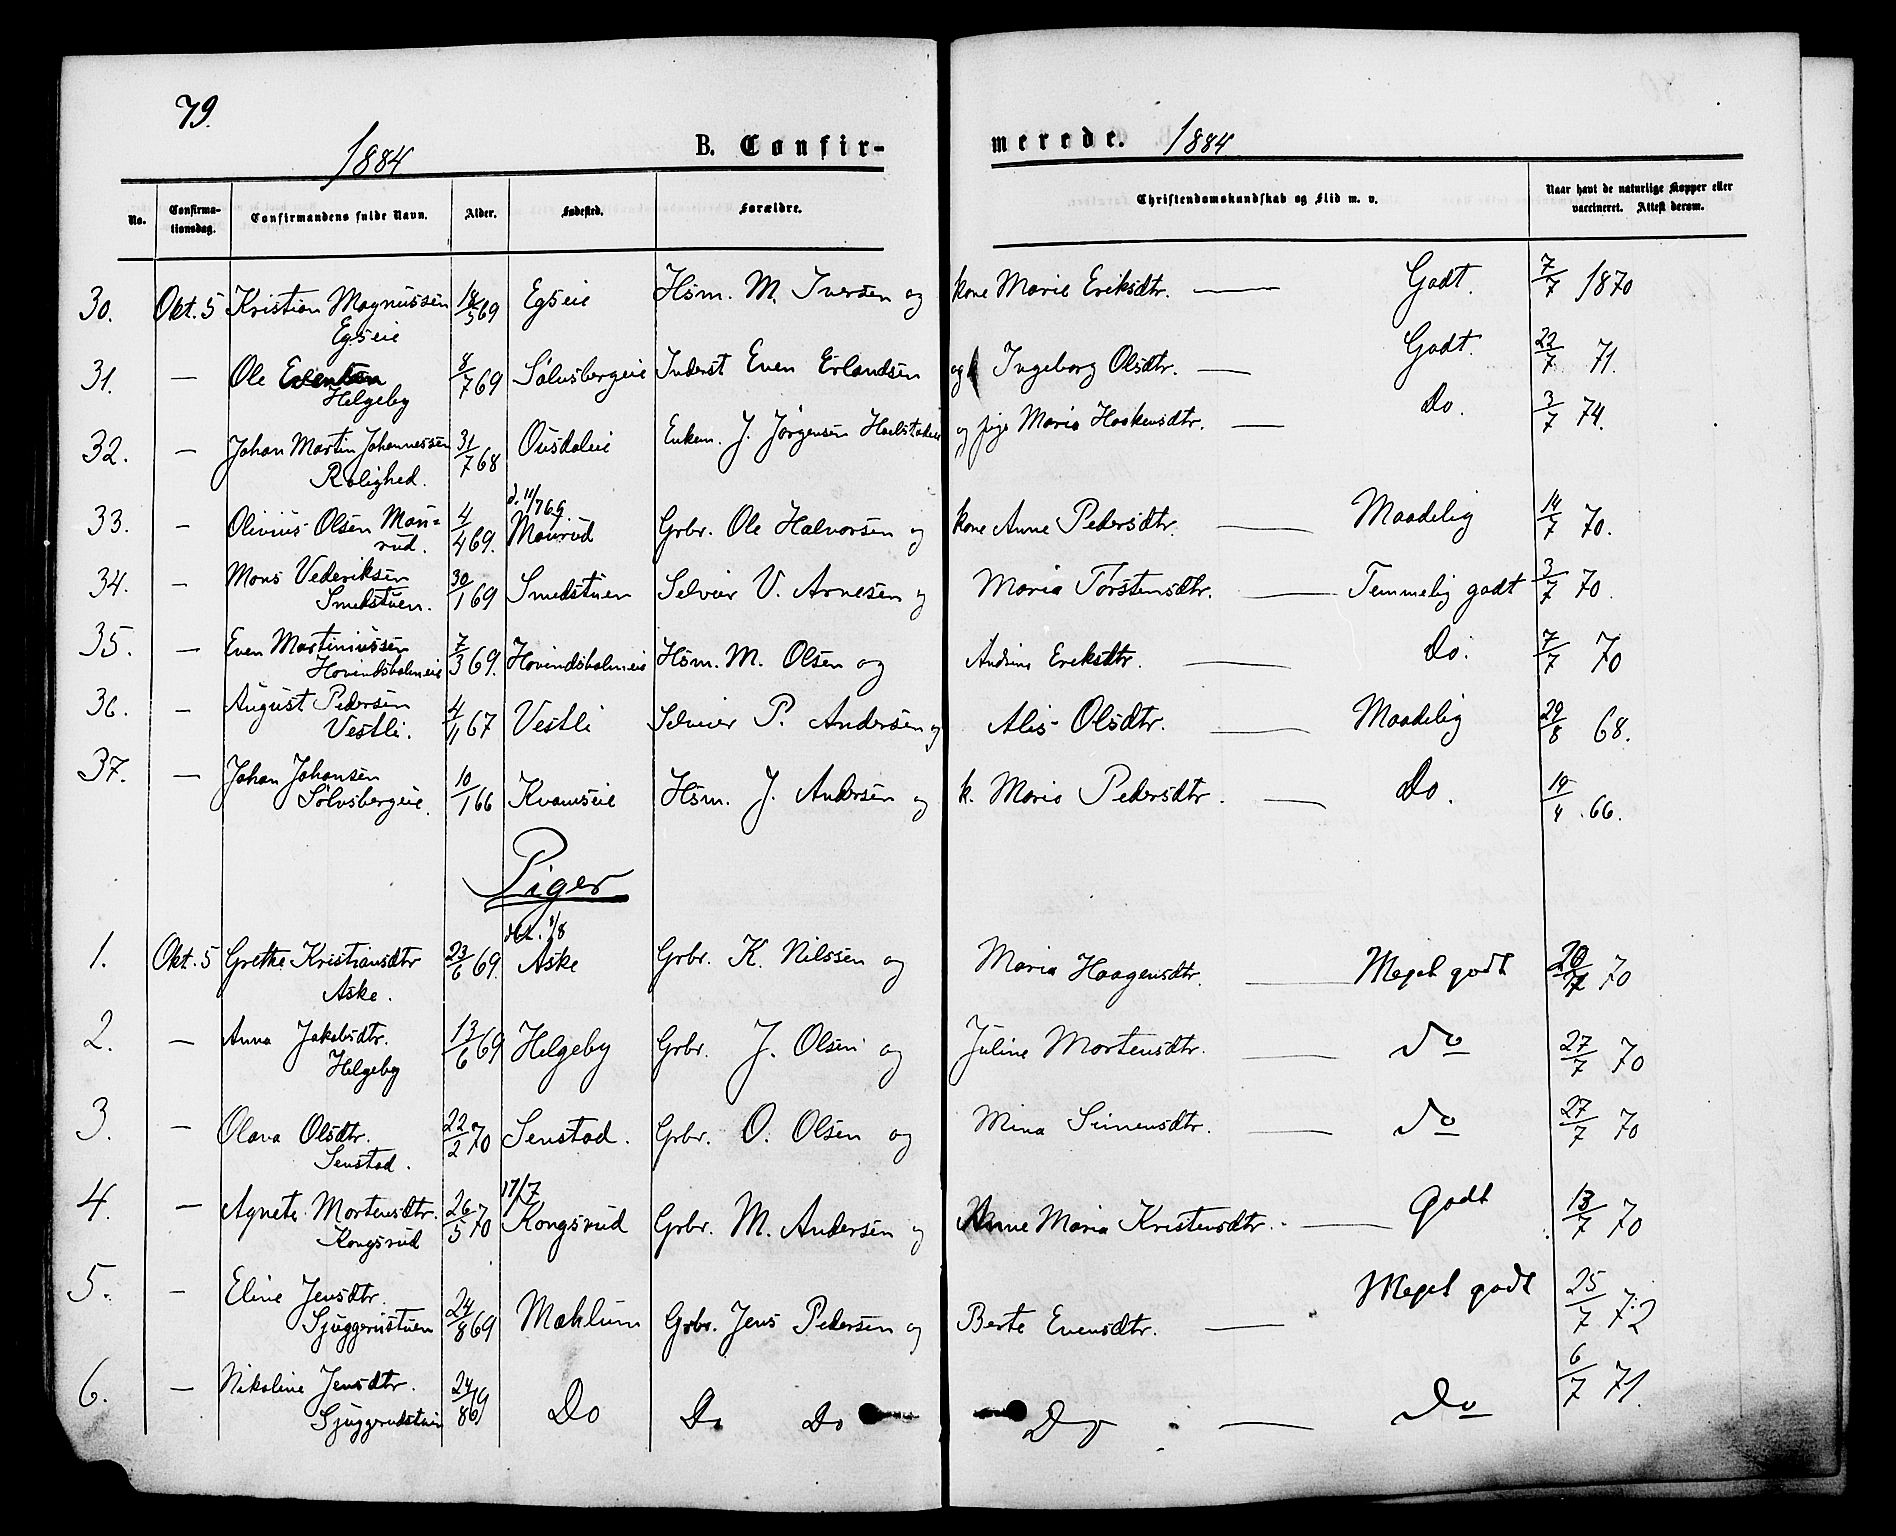 79.
1884
B. Confir-
merede. 1884
No.
Confirma-
tionsdag.
Confirmandens fulde Navn.
Alder.
Fødested.
Forældre.
Christendomskundskab og Flid m. v.
Naar havt de naturlige Kopper eller
vaccineret. Attest derom.
30. Okt. 5 Kristian Magnussen 18/5 69 Egseie Hsm. M. Iversen og kone Marie Eriksdtr. — Godt. 7/7 1870
Egseie
31. — Ole Evensen 8/7 69 Sølvsbergeie Inderst Even Erlandsen og k Ingeborg Olsdtr. — Godt. 22/7 71.
Helgeby
32. — Johan Martin Johannessen 31/7 68 Ousdaleie Enkem. J. Jørgensen og pige Maria Haakensdtr. — Do. 3/7 74.
Rolighed.
d. 11/7 69
33. — Olivius Olsen Mau= 4/4 69. Maurud Grbr. Ole Halvorsen og kone Anne Pedersdtr. — Maadelig 14/7 70.
rud.
34. — Mons Vederiksen 30/1 69 Smedstuen Selveier V. Arnesen og Maria Torstensdtr. — Temmelig godt 3/7 70.
Smedstuen.
35. — Even Martiniussen 7/3 69. Hovindsholmeie Hsm. M. Olsen og Andrine Eriksdtr. — Do. 7/7 70
Hovindsholmeie
36. — August Pedersen 4/11 67 Vestli Selveier P. Andersen og Alis Olsdtr. — Maadelig 29/8 68.
Vestli.
37. — Johan Johansen 10/1 66 Kvamseie Hsm. J. Andersen og k. Maria Pedersdtr. — Do. 19/4 66.
Sølvsbergeie.
Piger
1/8
1. Okt. 5 Grethe Kristiansdtr 23/6 69. Aske Grbr. K. Nilssen og Maria Haagensdtr. — Meget godt 20/7 70
Aske.
2. — Anna Jakobsdtr. 13/6 69 Helgeby Grbr. J. Olsen og Juline Mortensdtr. — do 27/7 70
Helgeby
3. — Olava Olsdtr. 22/2 70 Senstad. Grbr. O. Olsen og Mina Simensdtr. — do 27/7 70
Senstad.
17/7
4. — Agnete Mortensdtr. 26/5 70 Kongsrud Grbr. M. Andersen og Anne Maria Kristensdtr. — godt 13/7 70
Kongsrud
5. — Eline Jensdtr. 24/8 69 Mæhlum Grbr. Jens Pedersen og Berte Evensdtr. — Meget godt 25/7 72
Sjuggerustuen
6. — Nikoline Jensdtr. 24/8 69 Do Do Do Do — Do 6/7 71.
Sjuggerudstuen